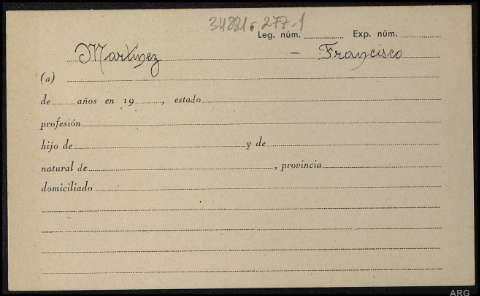 34821-277-1
Leg. núm. Exp. núm.
Martinez - Francisco
(a)
de años en 19 , estado
profesión
hijo de y de
natural de , provincia
domiciliado
ARG